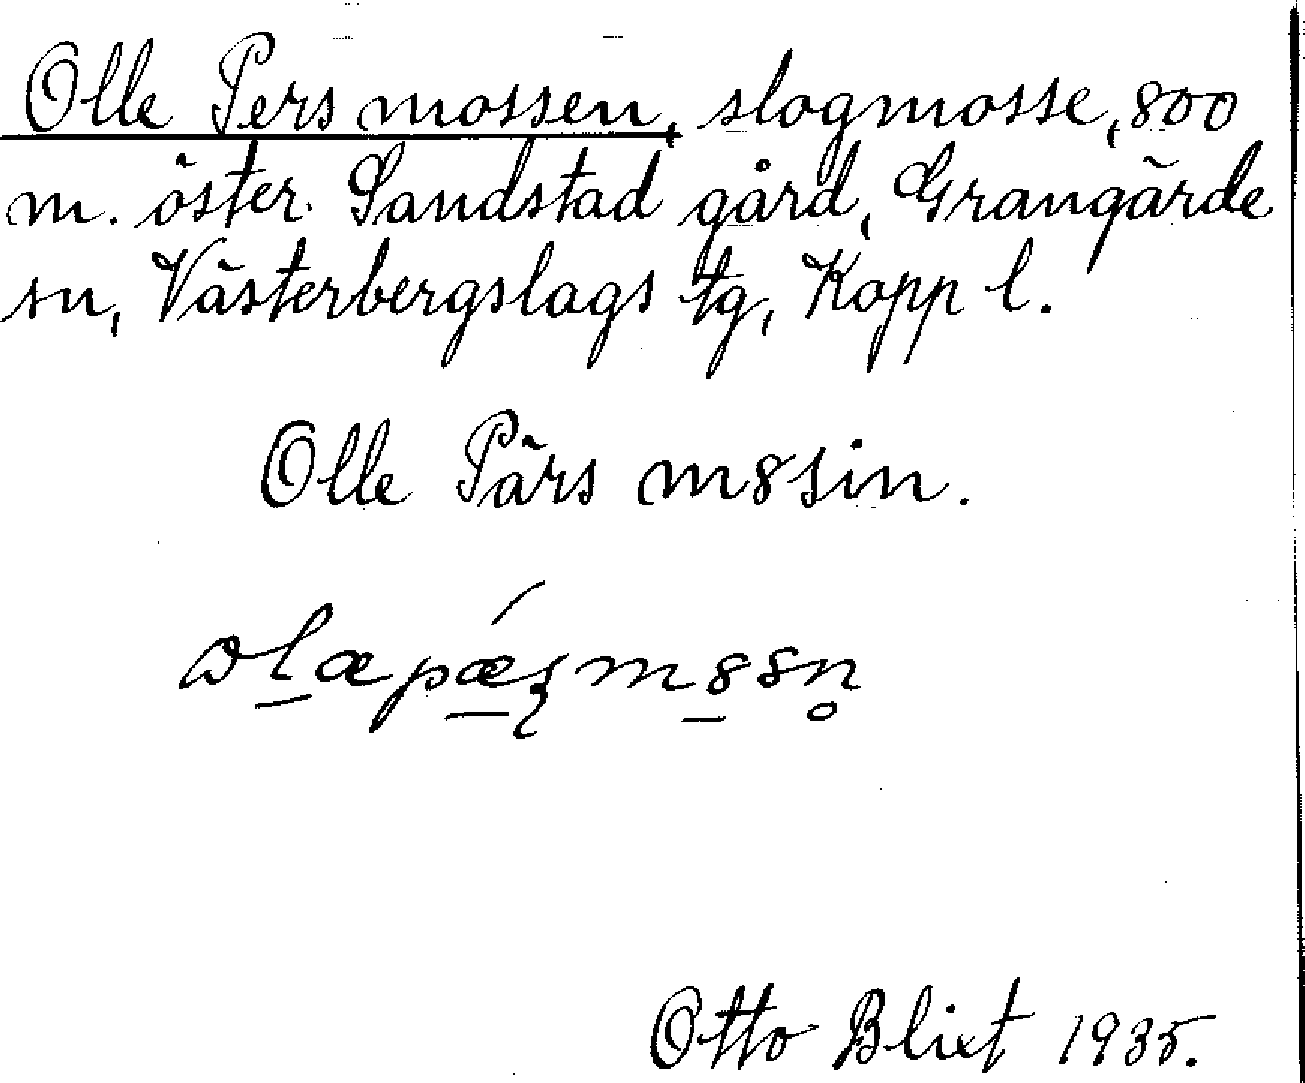 Olle Pers mossen, slogmosse, 800
m. öster Sandstad gård, Grangärde
sn, Västerbergslags tg, Kopp l.
Olle Pärs m8sin.
Otto Blixt 1935.